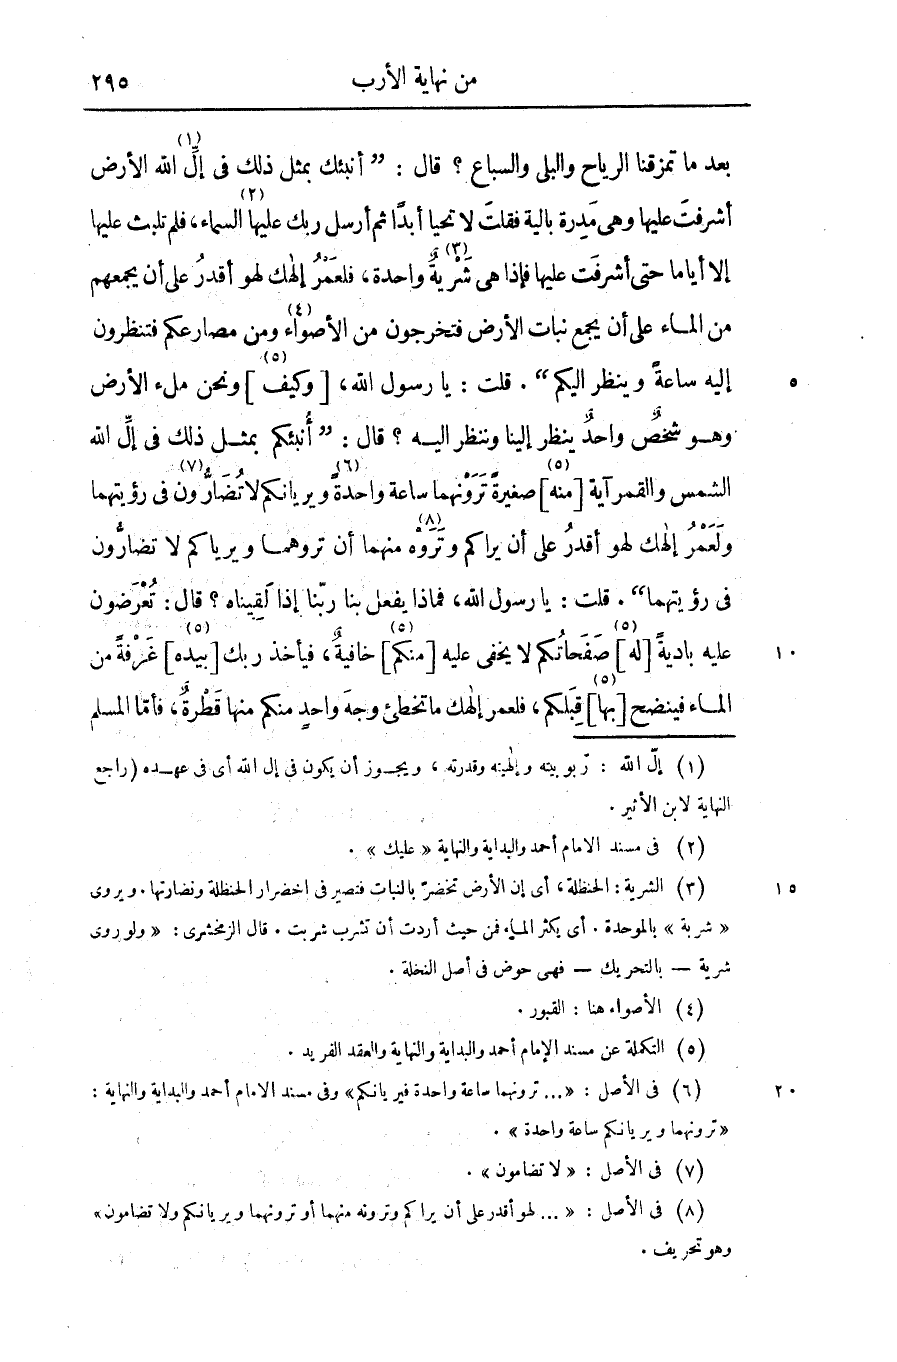 من نهاية الأرب ٢٩٥
بعد ما تمزقنا الرياح والبلى والسباع ؟ قال : ” أنبئك بمثل ذلك فى إلِّ (١) الله الأرض
أشرفتَ عليها وهى مَدِرة بالية فقلتَ لا تحيا أبدًا ثم أرسل ربك عليها (٢) السماء، فلم تلبث عليها
إلا أياما حتى أشرفتَ عليها فإذا هى شَرْيةٌ (٣) واحدة، فلعَمْرُ إلٰهك لهو أقدرُ على أن يجمعهم
من المـاء على أن يجمع نبات الأرض فتخرجون من الأصواء (٤) ومن مصارعكم فتنظرون
٥ إليه ساعةً وينظر اليكم“ . قلت : يا رسول الله، [وكيف (٥)] ونحن ملء الأرض
وهـو شخصٌ واحدٌ ينظر إلينا وننظر اليـه ؟ قال : ” أُنبئكم بمثـل ذلك فى إلِّ الله
الشمس والقمر آية [منه (٥)] صغيرةً تَرَوْنهما ساعة واحدةً (٦) ويريانكم لا تُضَارُّون (٧) فى رؤيتهما
ولَعَمْرُ إلٰهك لهو أقدرُ على أن يراكم وتَرَوْه (٨) منهما أن تروهمـا ويرياكم لا تضارُّون
فى رؤيتهما“ . قلت : يا رسول الله، فماذا يفعل بنا ربّنا إذا لَقِيناه ؟ قال : تُعْرَضون
١٠ عليه باديةً [له (٥)] صَفَحَاتُكم لا يخفى عليه [منكم (٥)] خافيةٌ، فيأخذ ربك [بيده (٥)] غَرْفةً من
المـاء فينضح [بها (٥)] قِبَلكم، فلعمر إلٰهك ما تخطئ وجهَ واحدٍ منكم منها قَطْرةٌ، فأمّا المسلم
(١) إلّ الله : ربوبيته وإلهيته وقدرته، ويجـوز أن يكون فى إل الله أى فى عهـده (راجع
النهاية لابن الأثير .
(٢) فى مسند الامام أحمد والبداية والنهاية « عليك » .
١٥ (٣) الشرية : الحنظلة، أى إن الأرض تخضرّ بالنبات فتصير فى اخضرار الحنظلة ونضارتها . ويروى
« شربة » بالموحدة . أى يكثر الماء فمن حيث أردت أن تشرب شربت . قال الزمخشرى : « ولو روى
شربة — بالتحريك — فهى حوض فى أصل النخلة .
(٤) الأصواء هنا : القبور .
(٥) التكملة عن مسند الإمام أحمد والبداية والنهاية والعقد الفريد .
٢٠ (٦) فى الأصل : « ... ترونهما ساعة واحدة فيريانكم » وفى مسند الامام أحمد والبداية والنهاية :
« ترونهما ويريانكم ساعة واحدة » .
(٧) فى الأصل : « لا تضامون » .
(٨) فى الأصل : « ... لهو أقدر على أن يراكم وترونه منهما أو ترونهما ويريانكم ولا تضامون »
وهو تحريف .